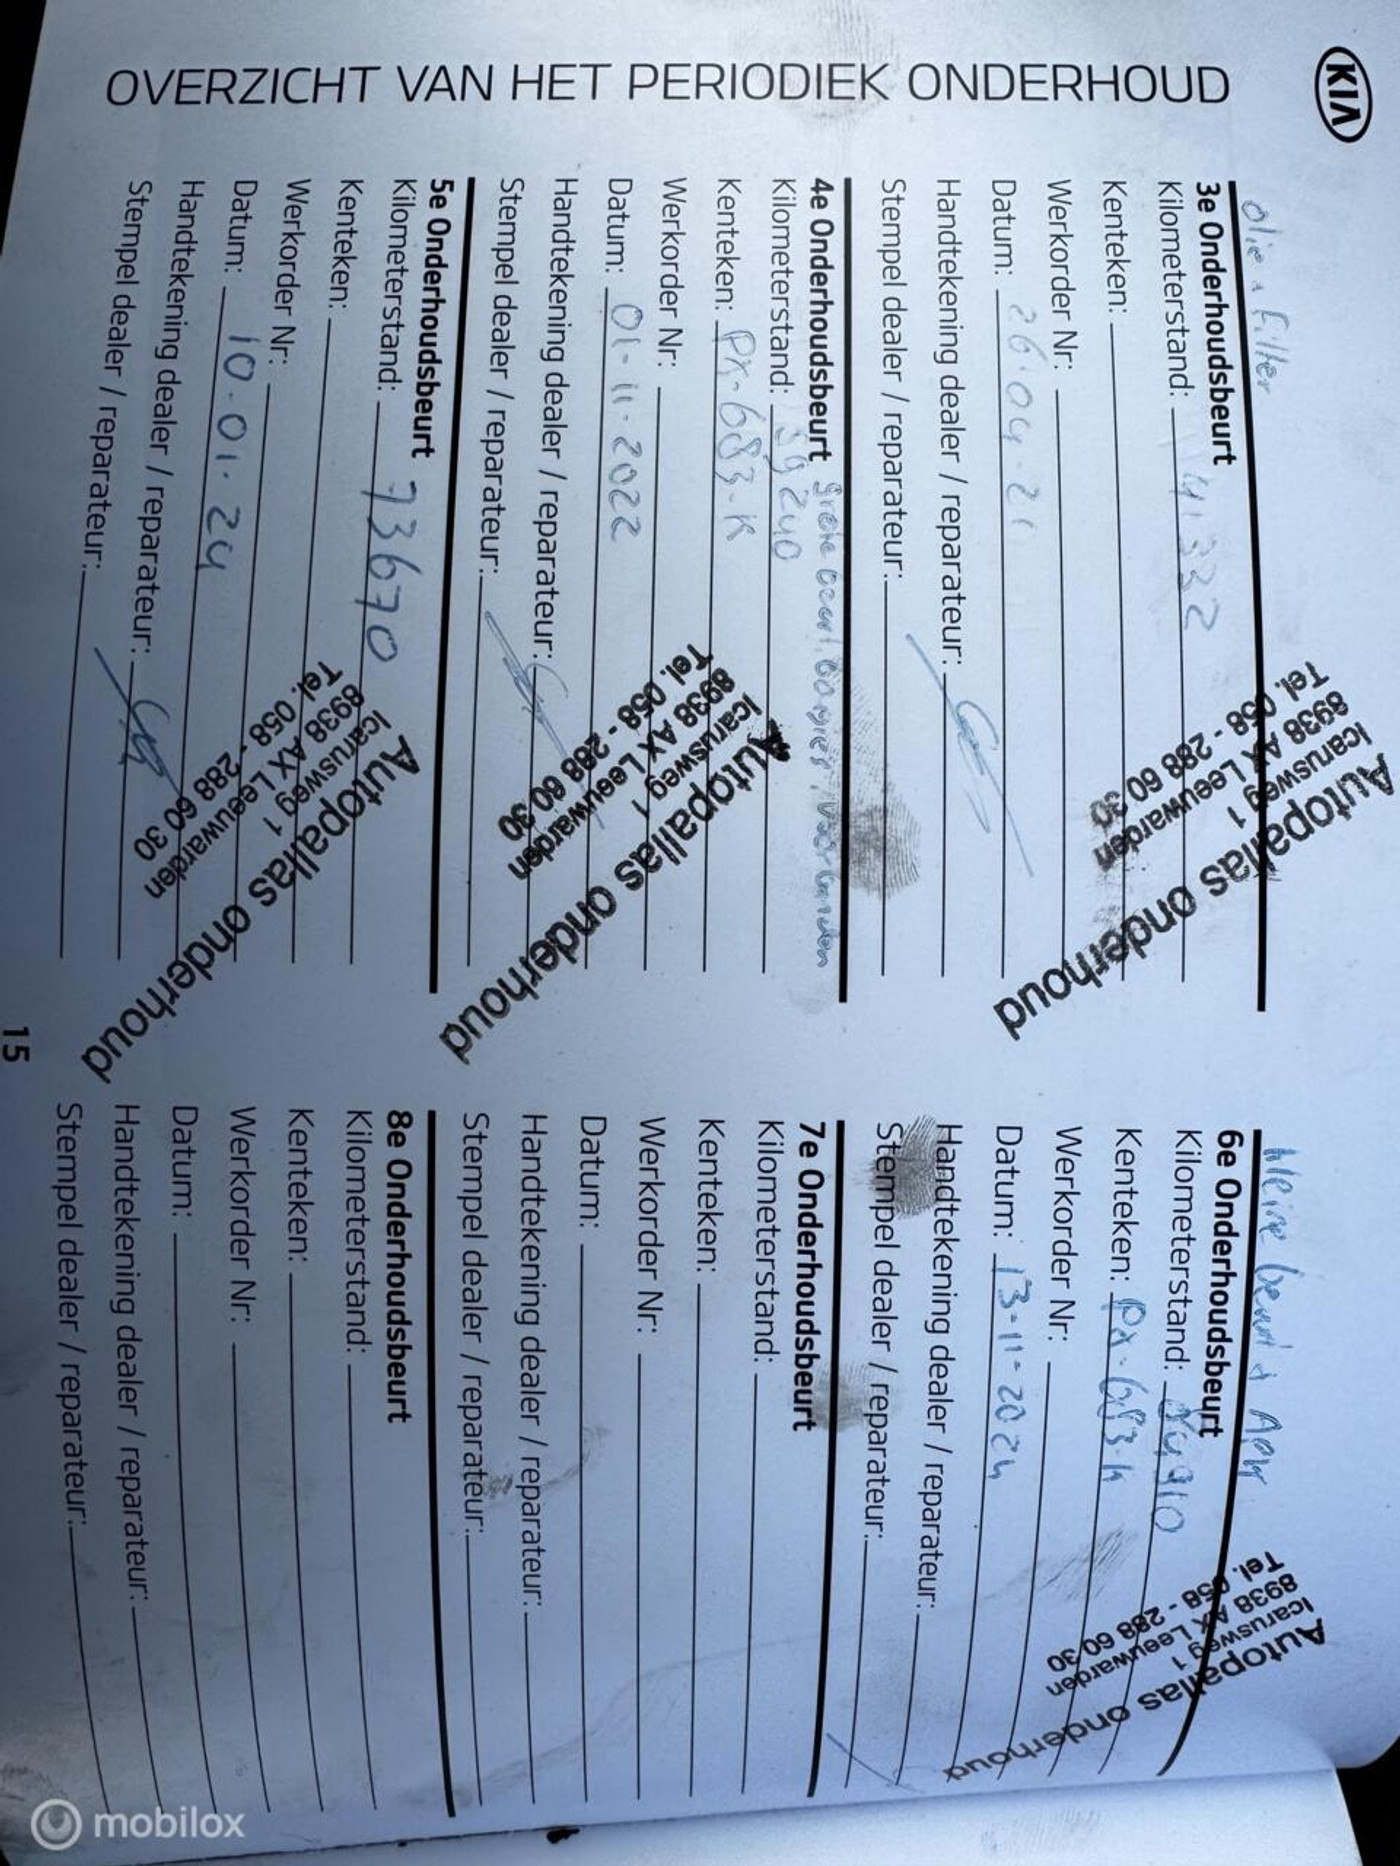 KIA
OVERZICHT VAN HET PERIODIEK ONDERHOUD
olie + filter
3e Onderhoudsbeurt
Kilometerstand: 41332
Kenteken:
Werkorder Nr:
Datum: 26.04.21
Handtekening dealer / reparateur:
Stempel dealer / reparateur:
Autopallas onderhoud
Icarusweg 1
8938 AX Leeuwarden
Tel. 058 - 288 60 30
4e Onderhoudsbeurt grote beurt
Kilometerstand: 59240
Kenteken: PX-683-K
Werkorder Nr:
Datum: 01-11-2022
Handtekening dealer / reparateur:
Stempel dealer / reparateur:
Autopallas onderhoud
Icarusweg 1
8938 AX Leeuwarden
Tel. 058 - 288 60 30
5e Onderhoudsbeurt
Kilometerstand: 73670
Kenteken:
Werkorder Nr:
Datum: 10.01.24
Handtekening dealer / reparateur:
Stempel dealer / reparateur:
Autopallas onderhoud
Icarusweg 1
8938 AX Leeuwarden
Tel. 058 - 288 60 30
kleine beurt + APK
6e Onderhoudsbeurt
Kilometerstand: 84910
Kenteken: PX-683-K
Werkorder Nr:
Datum: 13-11-2024
Handtekening dealer / reparateur:
Stempel dealer / reparateur:
Autopallas onderhoud
Icarusweg 1
8938 AX Leeuwarden
Tel. 058 - 288 60 30
7e Onderhoudsbeurt
Kilometerstand:
Kenteken:
Werkorder Nr:
Datum:
Handtekening dealer / reparateur:
Stempel dealer / reparateur:
8e Onderhoudsbeurt
Kilometerstand:
Kenteken:
Werkorder Nr:
Datum:
Handtekening dealer / reparateur:
Stempel dealer / reparateur:
15
mobilox